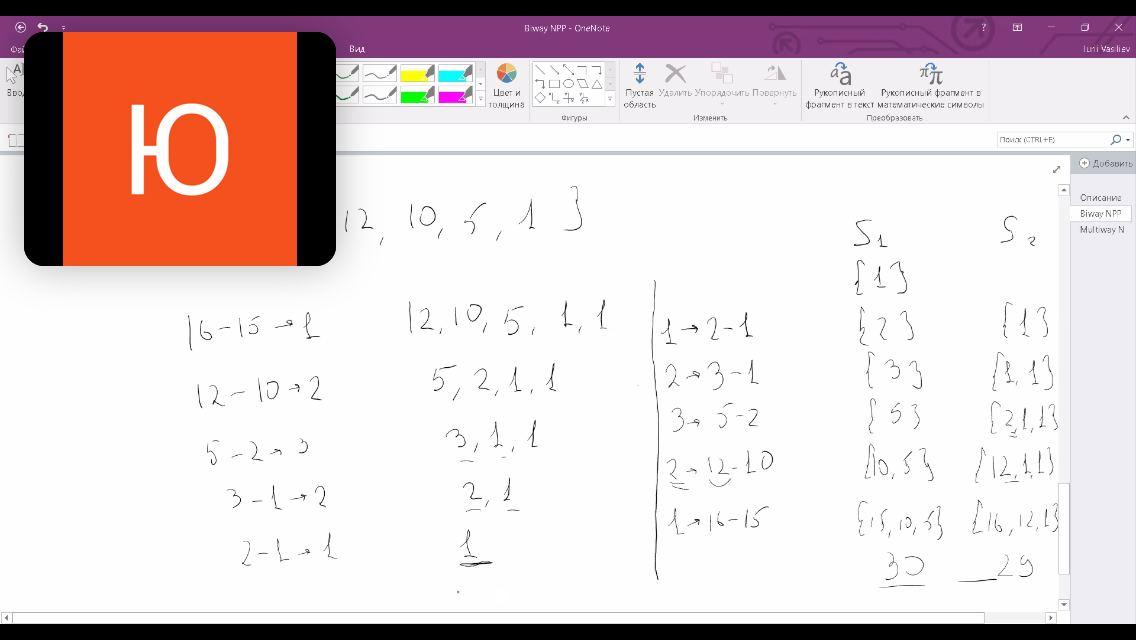 Biway NPP - OneNote
?
Фай
Вид
Iurii Vasiliev
Ю
Ввод
Цвет и толщина
Фигуры
Пустая область
Удалить
Упорядочить
Повернуть
Изменить
Рукописный фрагмент в текст
Рукописный фрагмент в математические символы
Преобразовать
Поиск (CTRL+E)
Добавить
Описание
Biway NPP
Multiway N
12, 10, 5, 1 }
S1 S2
{1}
16-15→1 12, 10, 5, 1, 1 1→2-1 {2} {1}
12-10→2 5, 2, 1, 1 2→3-1 {3} {1, 1}
5-2→3 3, 1, 1 3→5-2 {5} {2,1,1}
3-1→2 2, 1 2→12-10 {10, 5} {12,1,1}
2-1→1 1 1→16-15 {15, 10, 5} {16, 12, 1}
30 29